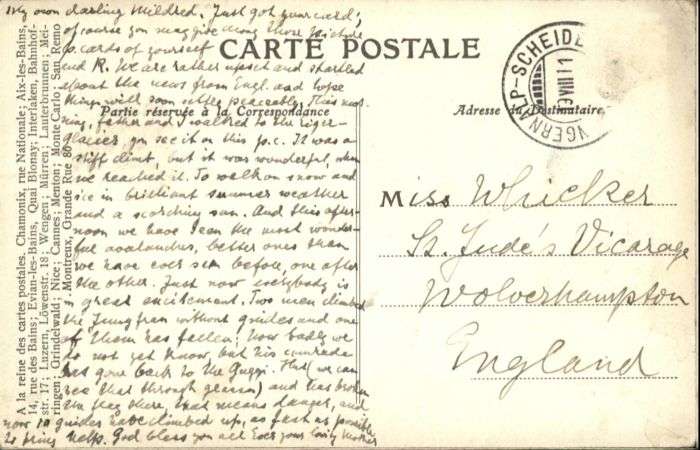 My own darling Mildred. Just got your card;
of course you may give Mong those picture
p. cards of yourself
and R. We are rather upset and startled
about the news from Engl. and hope
things will soon settle peaceably. This mor-
ning, father and I walked to the Eiger-
glacier, you see it on this p.c. It was a
stiff climb, but it was wonderful, when
we reached it. To walk on snow and
ice in brilliant summer weather
and a scorching sun. And this after-
noon we have seen the most wonder-
ful avalanches, better ones than
we have ever seen before, one after
the other. Just now everybody is
in great excitement. Two men climbed
the Jungfrau without guides and one
of them has fallen; how badly we
do not yet know, but his comrade
has gone back to the Guggi. Hut (we can
see that through glasses) and has broken
the flag there, that means danger, and
now 10 guides have climbed up, as fast as possible
to bring help. God bless you all Ever your loving Mother
CARTE POSTALE
Partie réservée à la Correspondance
Adresse du Destinataire
LP-SCHEIDE
VIII 11
Miss Whicker
St. Jude's Vicarage
Wolverhampton
England
A la reine des cartes postales. Chamonix, rue Nationale; Aix-les-Bains,
14, rue des Bains; Evian-les-Bains, Quai Blonay; Interlaken, Bahnhof-
str. 17; Luzern, Löwenstr. 18; Wengen; Mürren; Lauterbrunnen; Mei-
ringen; Grindelwald; Nice; Cannes; Menton; Monte Carlo; San Remo
Montreux, Grande Rue 80